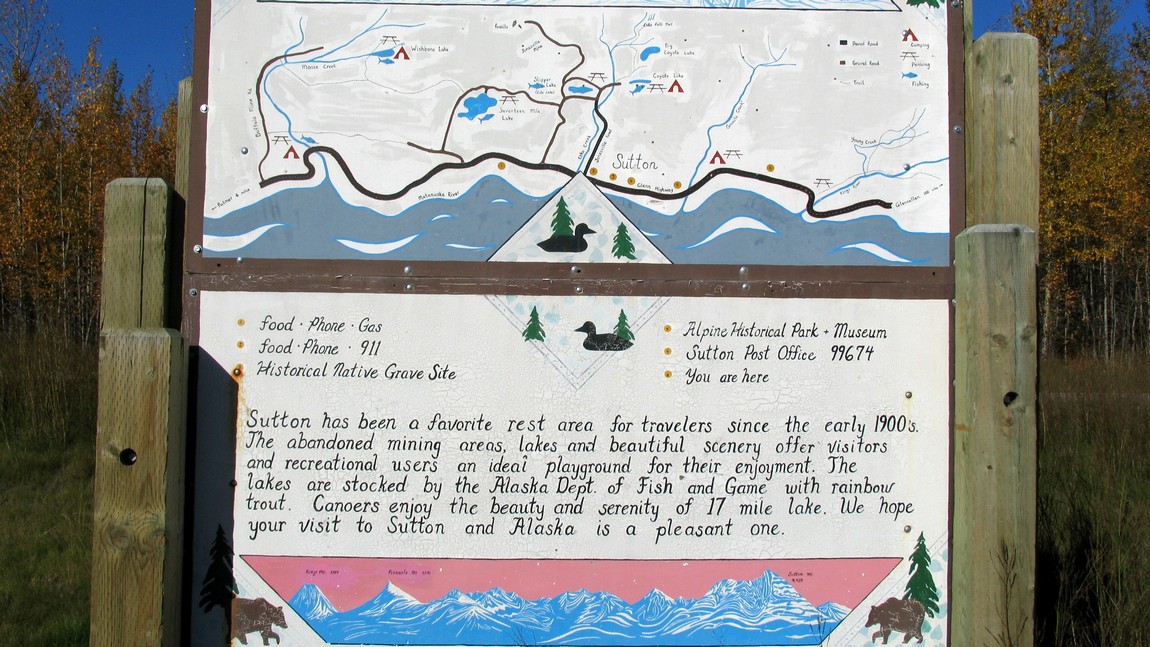 Wishbone Lake
Moose Creek
Slipper Lake
Seventeen Mile Lake
Big Coyote Lake
Coyote Lake
Paved Road
Gravel Road
Trail
Camping
Fishing
Young Creek
Sutton
Glenn Highway
Matanuska River
Food · Phone · Gas
Food · Phone · 911
Historical Native Grave Site
Alpine Historical Park + Museum
Sutton Post Office 99674
You are here
Sutton has been a favorite rest area for travelers since the early 1900's.
The abandoned mining areas, lakes and beautiful scenery offer visitors
and recreational users an ideal playground for their enjoyment. The
lakes are stocked by the Alaska Dept. of Fish and Game with rainbow
trout. Canoers enjoy the beauty and serenity of 17 mile lake. We hope
your visit to Sutton and Alaska is a pleasant one.